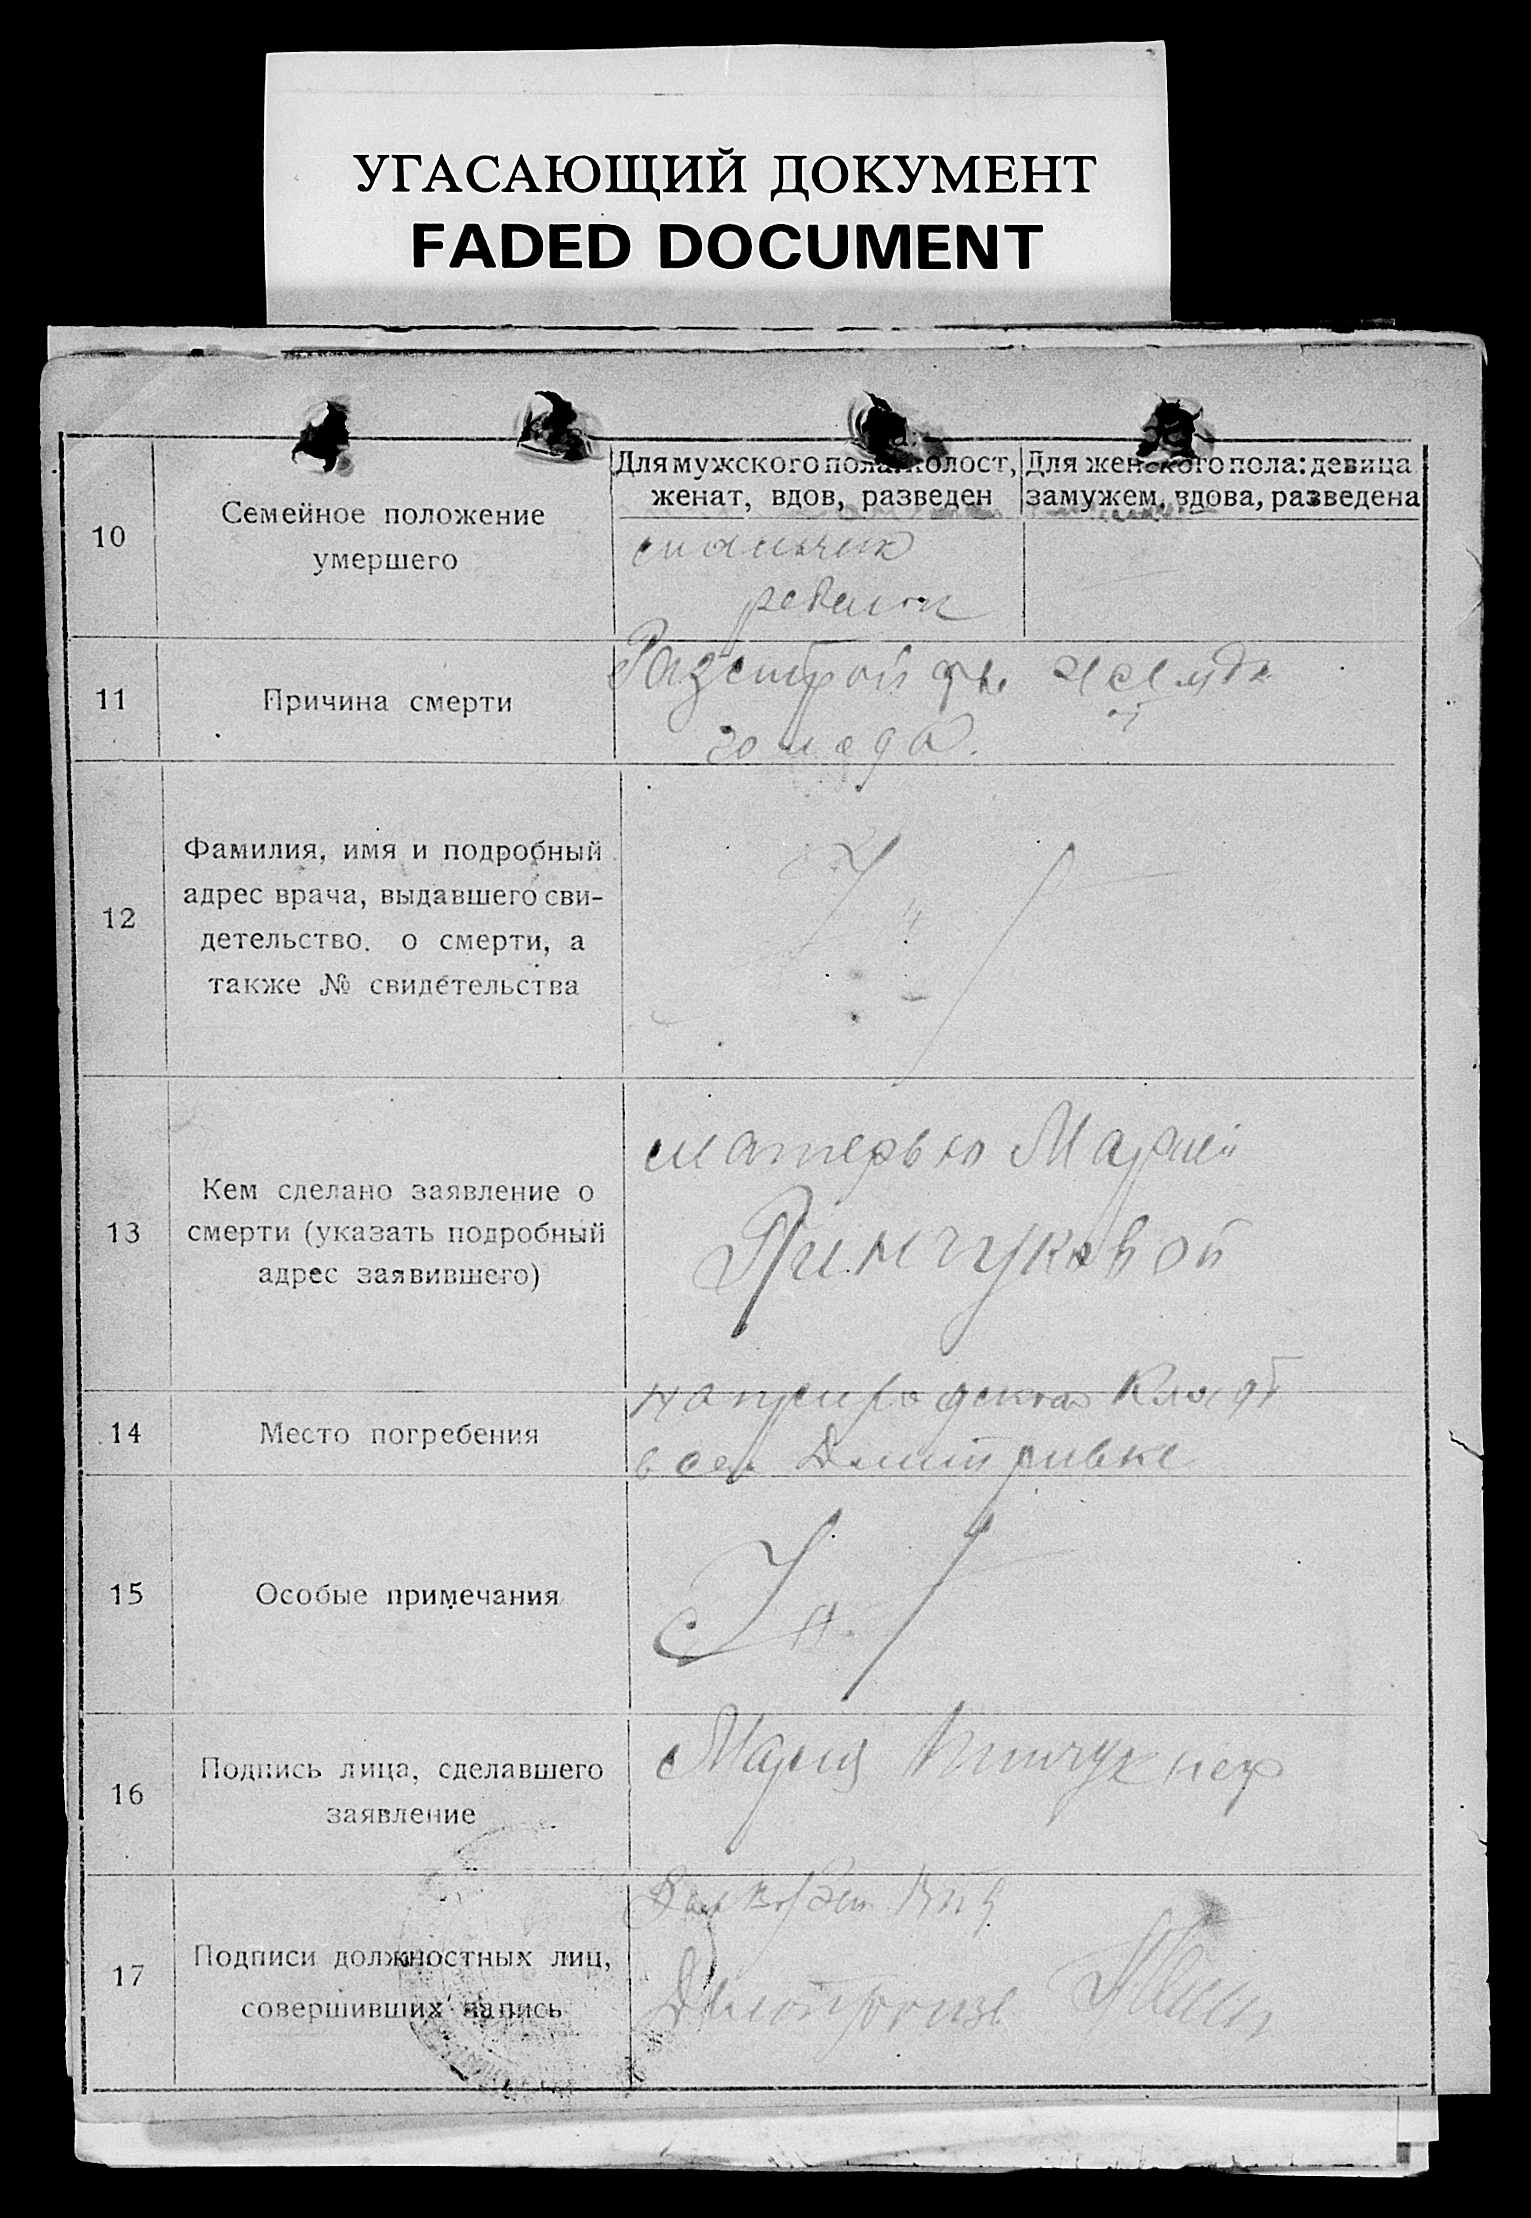 УГАСАЮЩИЙ ДОКУМЕНТ
FADED DOCUMENT
10
Семейное положение
умершего
Для мужского пола: холост,
женат, вдов, разведен
Для женского пола: девица
замужем, вдова, разведена
мальчик
ребенок
11
Причина смерти
Разстройство
от
голода.
12
Фамилия, имя и подробный
адрес врача, выдавшего сви-
детельство. о смерти, а
также № свидетельства
13
Кем сделано заявление о
смерти (указать подробный
адрес заявившего)
матерью Марией
Пинчуковой
14
Место погребения
в сел. Дмитривке
15
Особые примечания
16
Подпись лица, сделавшего
заявление
Мария Пинчук
17
Подписи должностных лиц,
совершивших запись